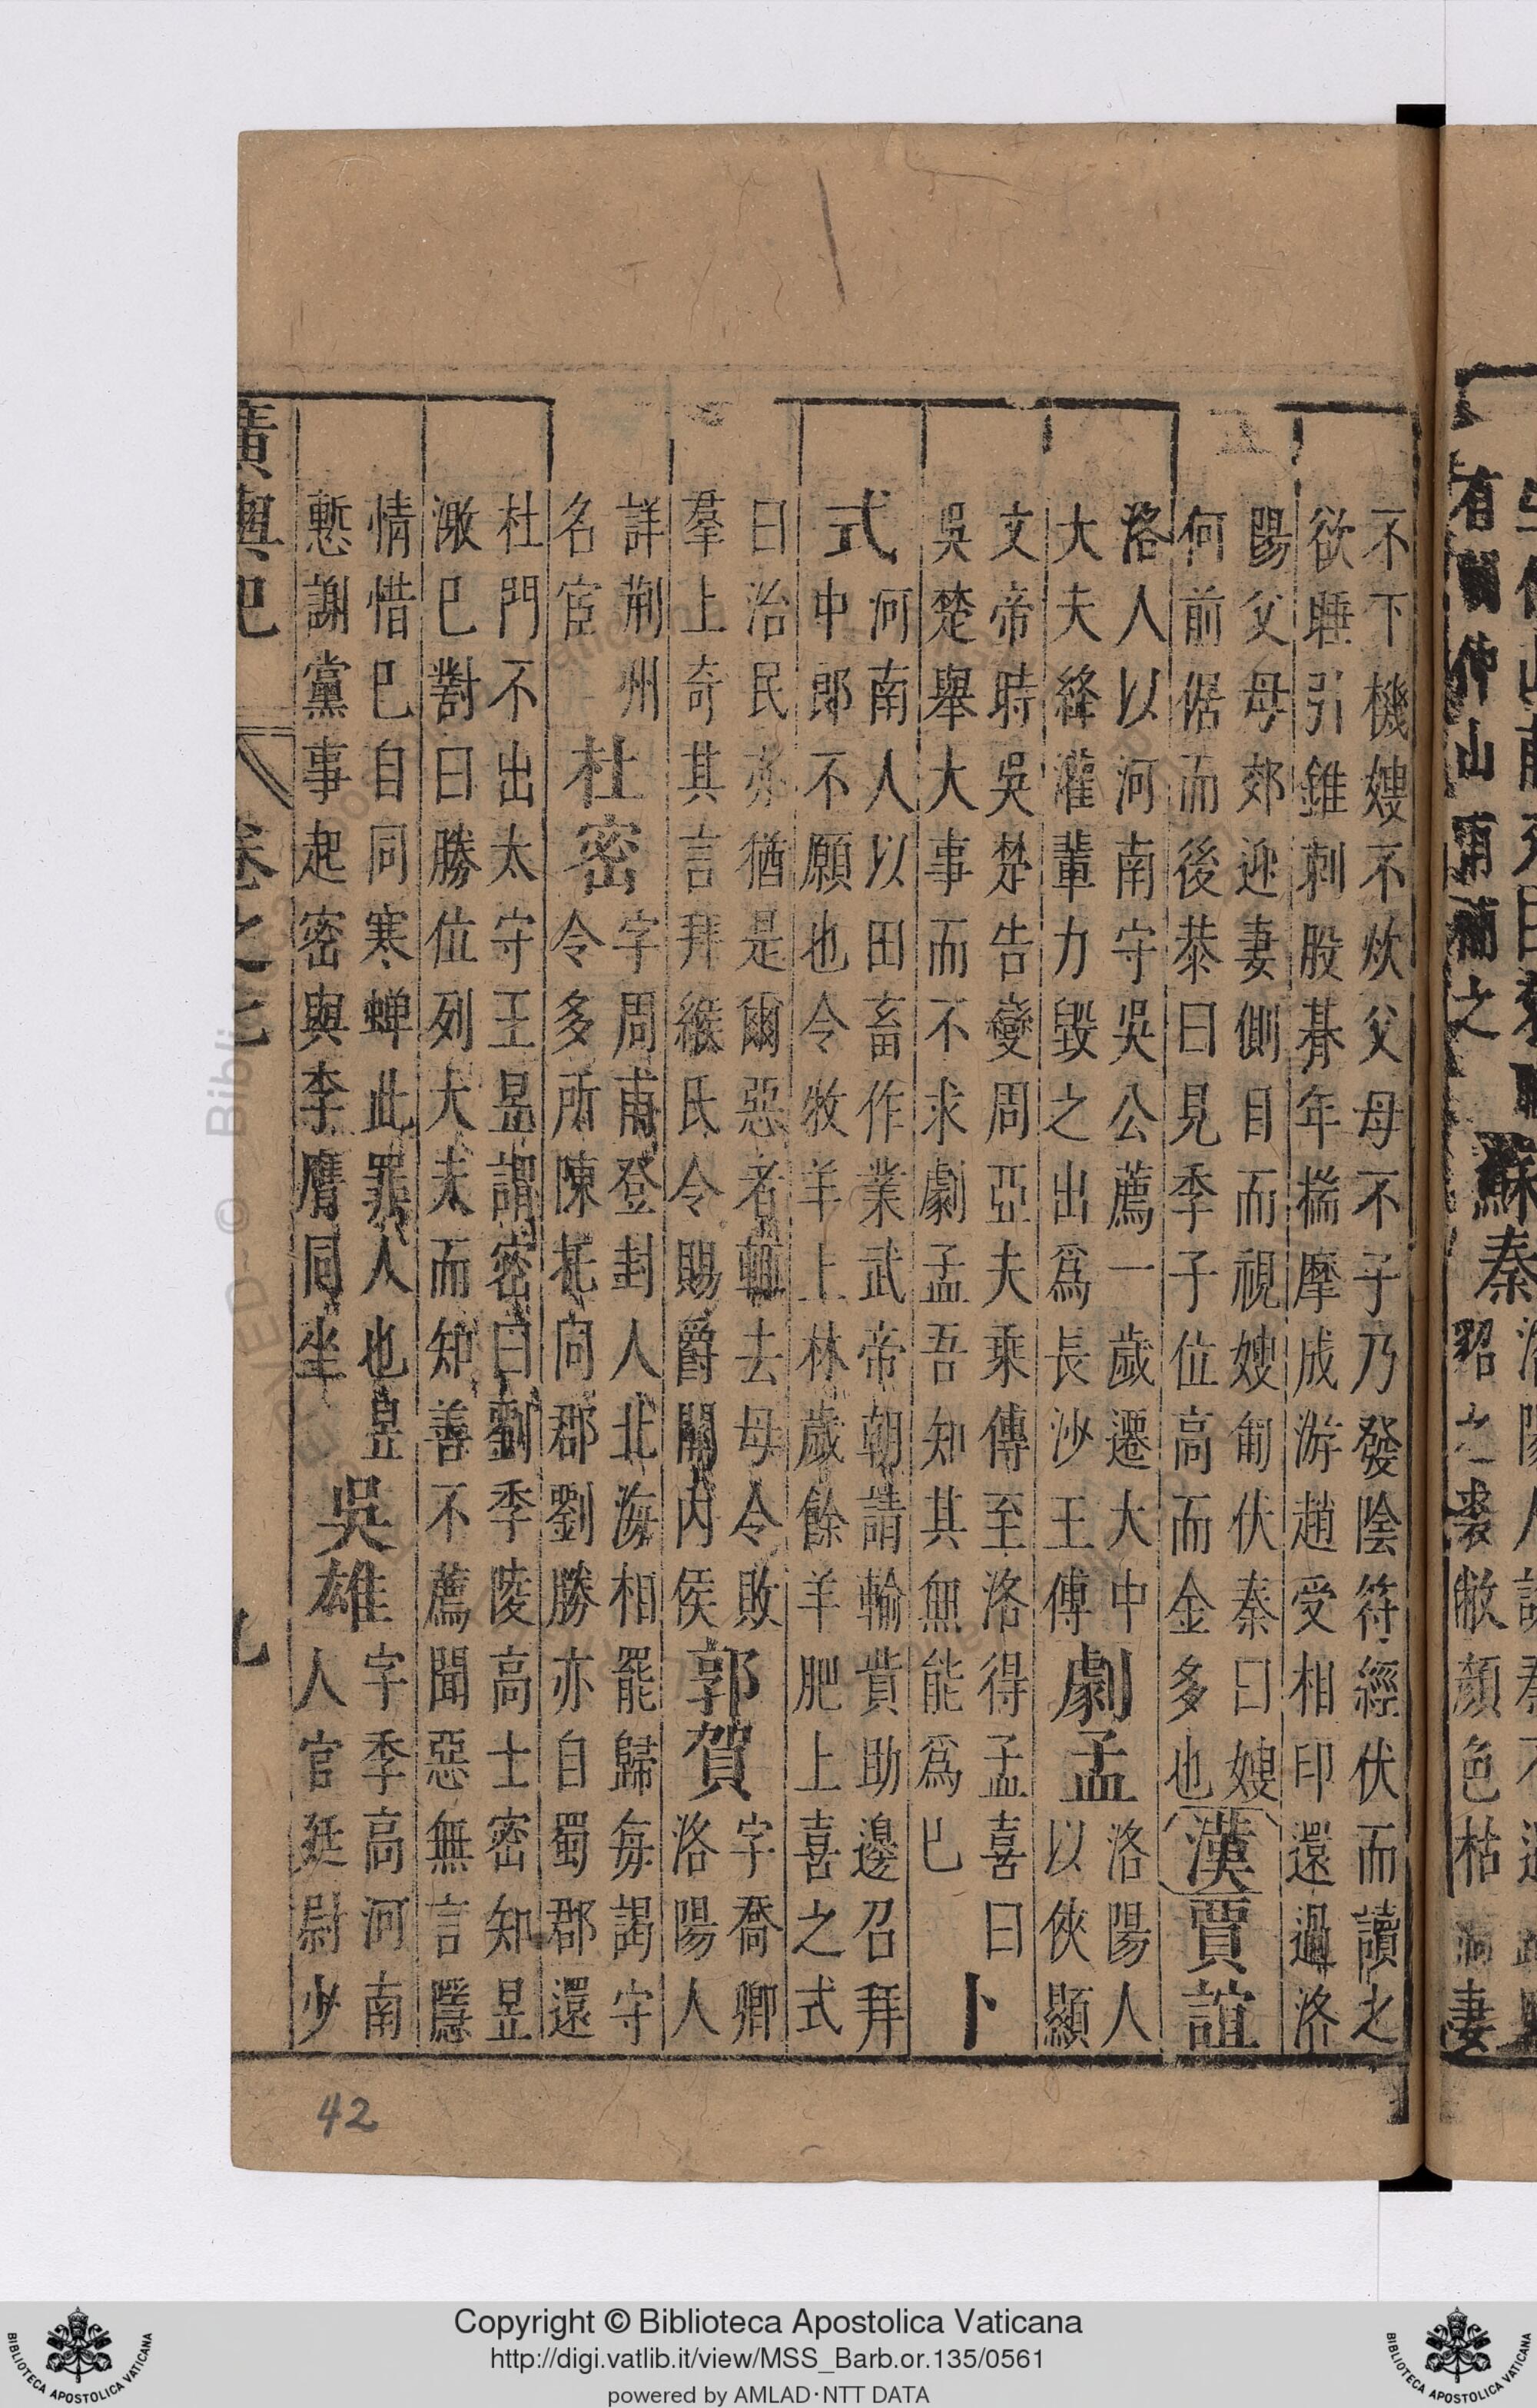 有關仲山甫補之
蘇秦
貂之裘敝顏色枯
妻
不下機嫂不炊父母不子乃發陰符經伏而讀之
欲睡引錐刺股朞年揣摩成游趙受相印還過洛
陽父母郊迎妻側目而視嫂匍伏秦曰嫂
何前倨而後恭曰見季子位高而金多也
漢賈誼
洛人以河南守吳公薦一歲遷大中
大夫絳灌輩力毀之出爲長沙王傅
劇孟
洛陽人
以俠顯
文帝時吳楚告變周亞夫乘傳至洛得孟喜曰
吳楚舉大事而不求劇孟吾知其無能爲已
卜
式
河南人以田畜作業武帝朝請輸貲助邊召拜
中郎不願也令牧羊上林歲餘羊肥上喜之式
曰治民亦猶是爾惡者輒去毋令敗
羣上奇其言拜緱氏令賜爵關内侯
郭賀
字喬卿
洛陽人
詳荊州
名宦
杜密
字周甫登封人北海相罷歸每謁守
令多所陳托同郡劉勝亦自蜀郡還
杜門不出太守王昱謂密曰劉季陵高士密知昱
激巳對曰勝位列大夫而知善不薦聞惡無言隱
情惜巳自同寒蟬此罪人也昱
慙謝黨事起密與李膺同坐
吳雄
字季高河南
人官廷尉少
廣輿記
卷之七
九
42
Copyright © Biblioteca Apostolica Vaticana
http://digi.vatlib.it/view/MSS_Barb.or.135/0561
powered by AMLAD·NTT DATA
BIBLIOTECA APOSTOLICA VATICANA
BIBLIOTECA APOSTOLICA VATICANA